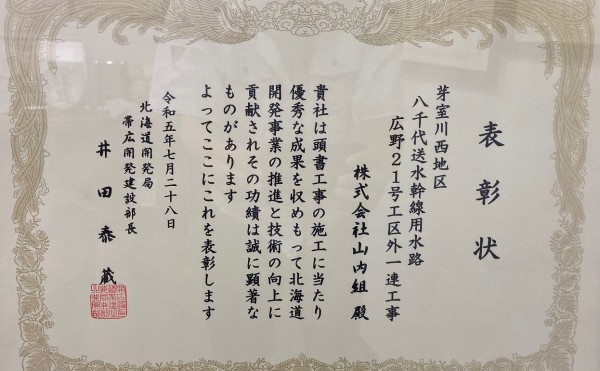 表彰状
芽室川西地区
八千代送水幹線用水路
広野21号工区外一連工事
株式会社山内組 殿
貴社は頭書工事の施工に当たり
優秀な成果を収めもって北海道
開発事業の推進と技術の向上に
貢献されその功績は誠に顕著な
ものがあります
よってここにこれを表彰します
令和五年七月二十八日
北海道開発局
帯広開発建設部長
井田泰蔵